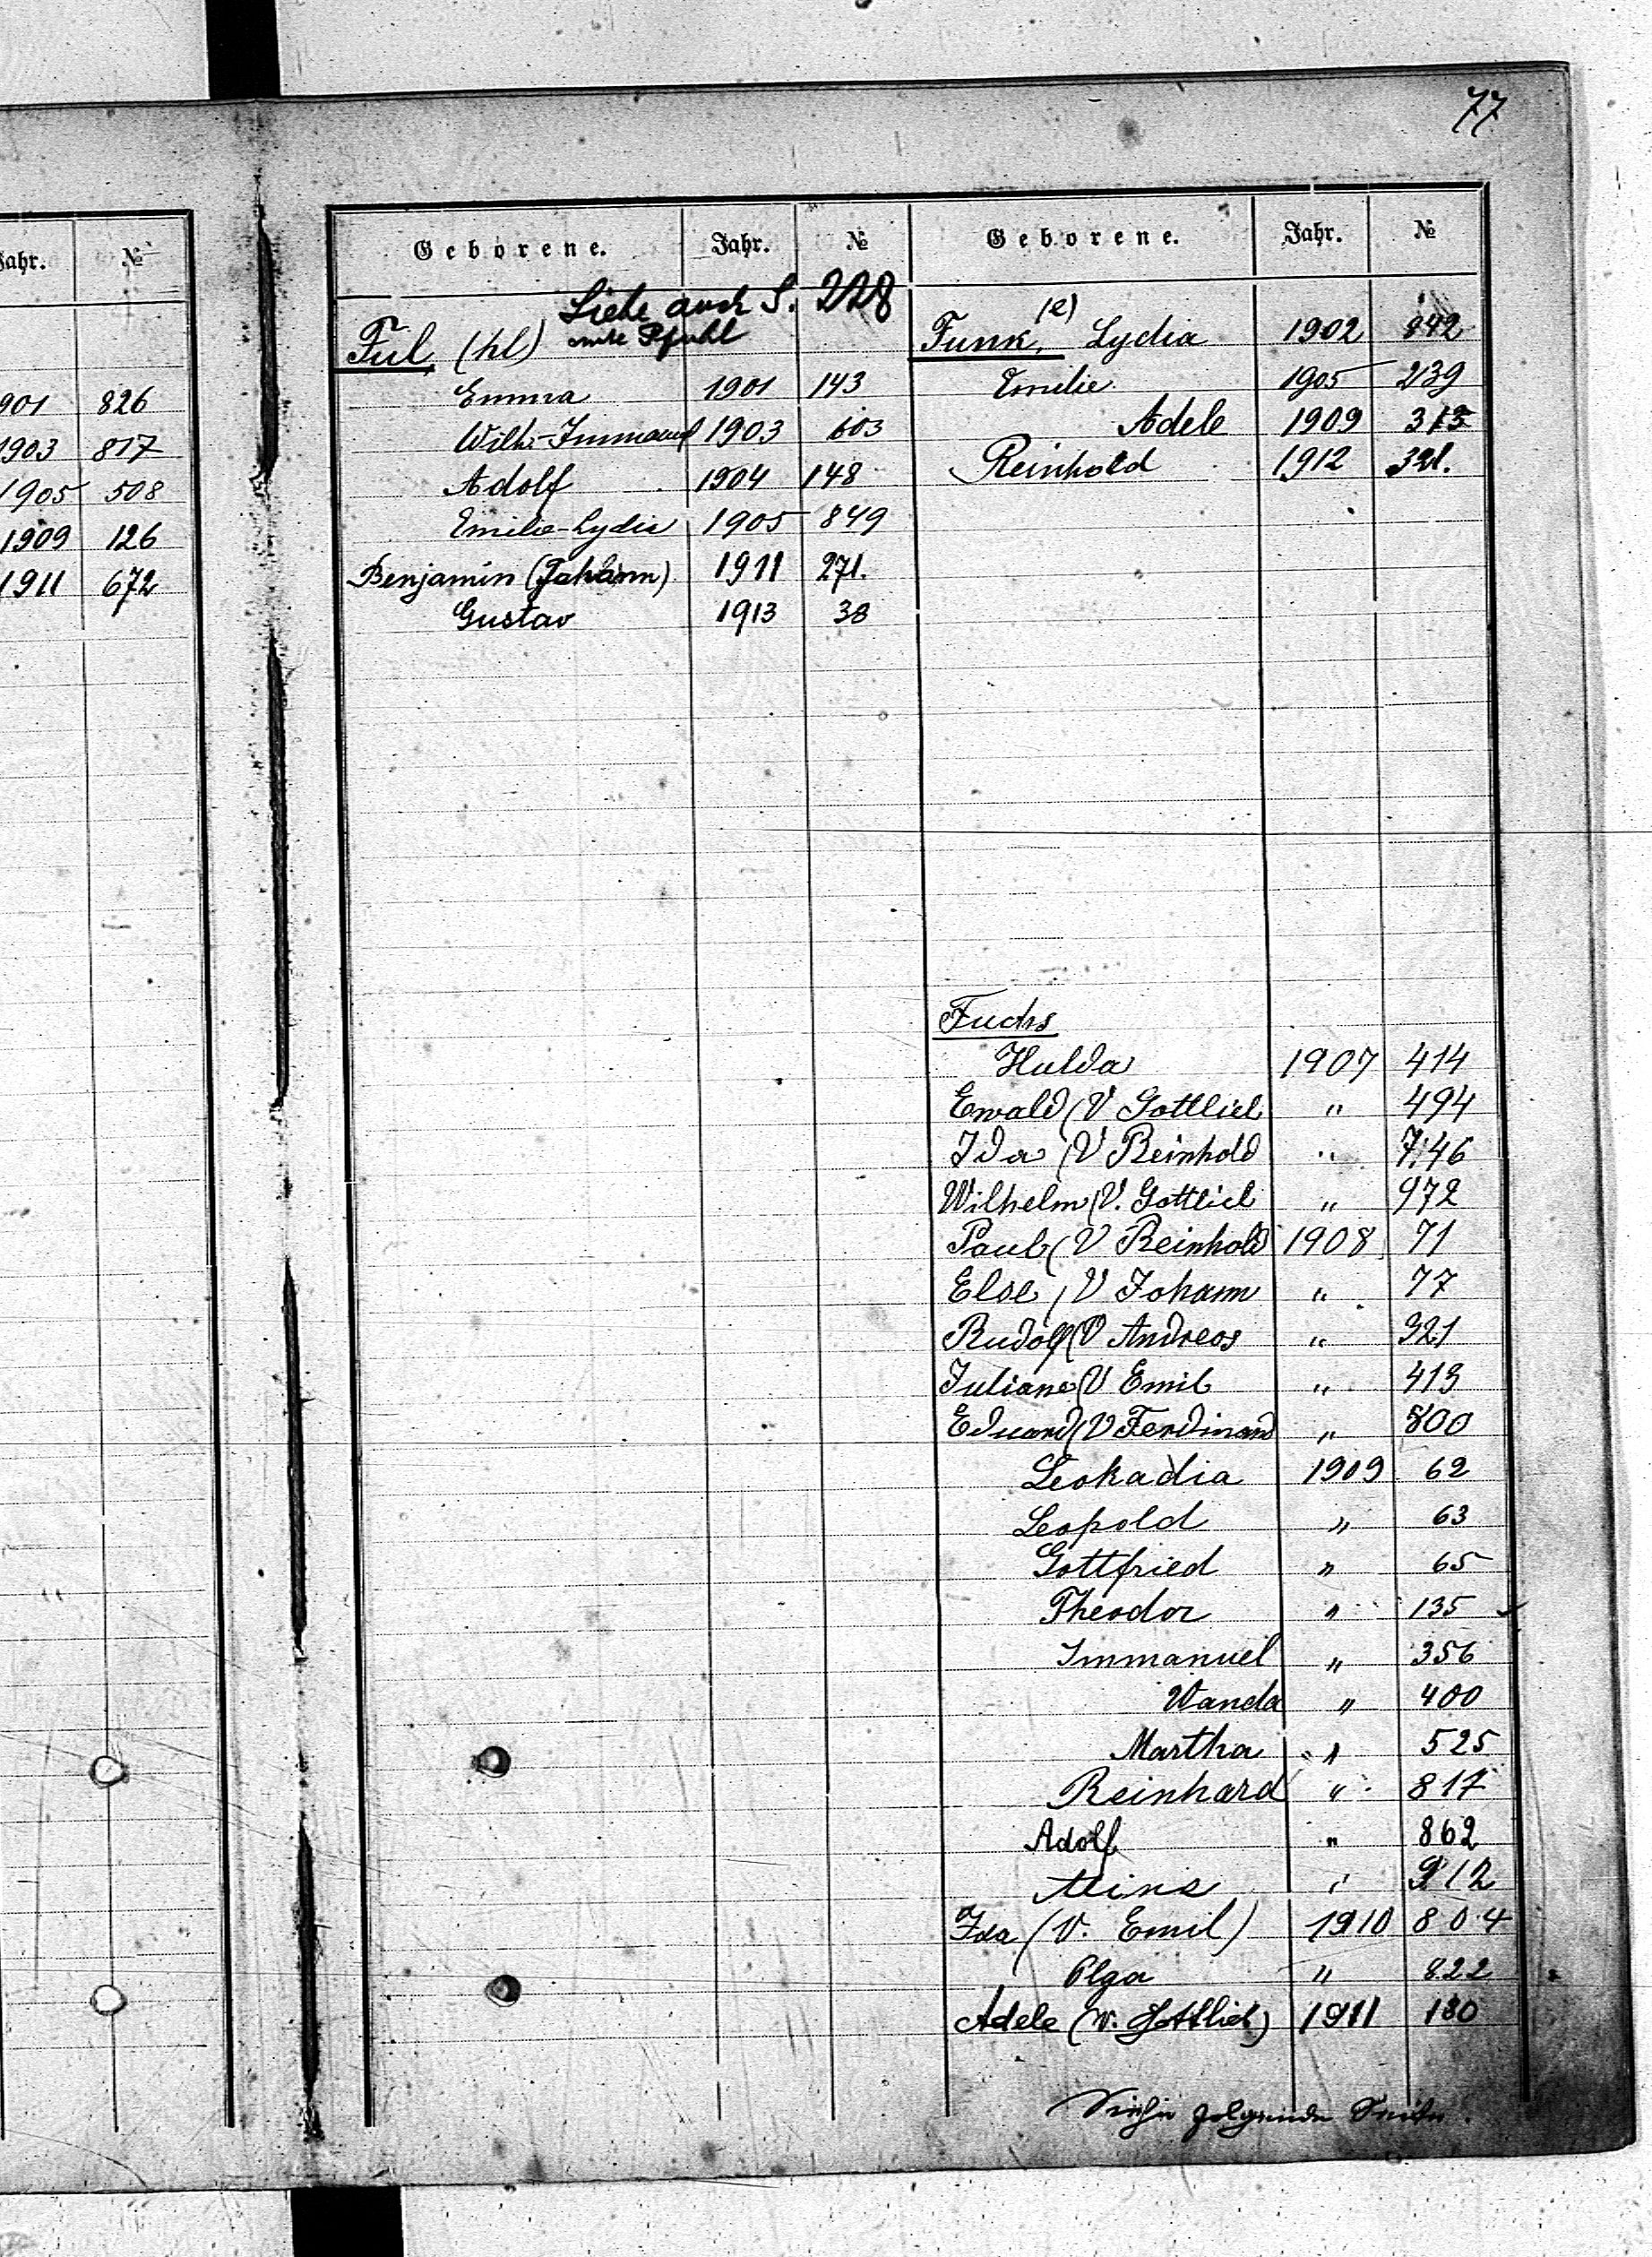 77
Jahr. №
901 826
1903 817
1905 508
1909 126
1911 672
Geborene. Jahr. №
Siehe auch S. 228
Ful (hl) unter Pfuhl
Emma 1901 143
Wilh.-Immanuel 1903 603
Adolf 1904 148
Emilie-Lydia 1905 849
Benjamin (Johann) 1911 271.
Gustav 1913 38
Geborene. Jahr. №
Funk, (e) Lydia 1902 842
Emilie 1905 239
Adele 1909 313
Reinhold 1912 321.
Fuchs
Hulda 1907 414
Ewald (V Gottlieb " 494
Ida (V Reinhold " 746
Wilhelm (V. Gottlieb " 972
Paul (V Reinhold 1908 71
Else (V Johann " 77
Rudolf (V Andreas " 321
Juliane (V Emil " 413
Eduard (V Ferdinand " 800
Leokadia 1909 62
Leopold " 63
Gottfried " 65
Theodor " 135
Immanuel " 356
Wanda " 400
Martha " 525
Reinhard " 817
Adolf " 862
" 912
Ida (V. Emil) 1910 804
Olga " 822
Adele (V. Gottlieb) 1911 180
Siehe folgende Seite.